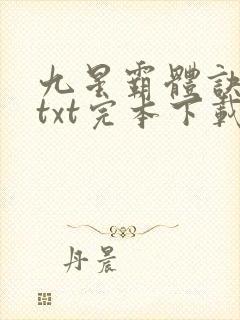 九星霸體訣
txt完本下載
丹晨